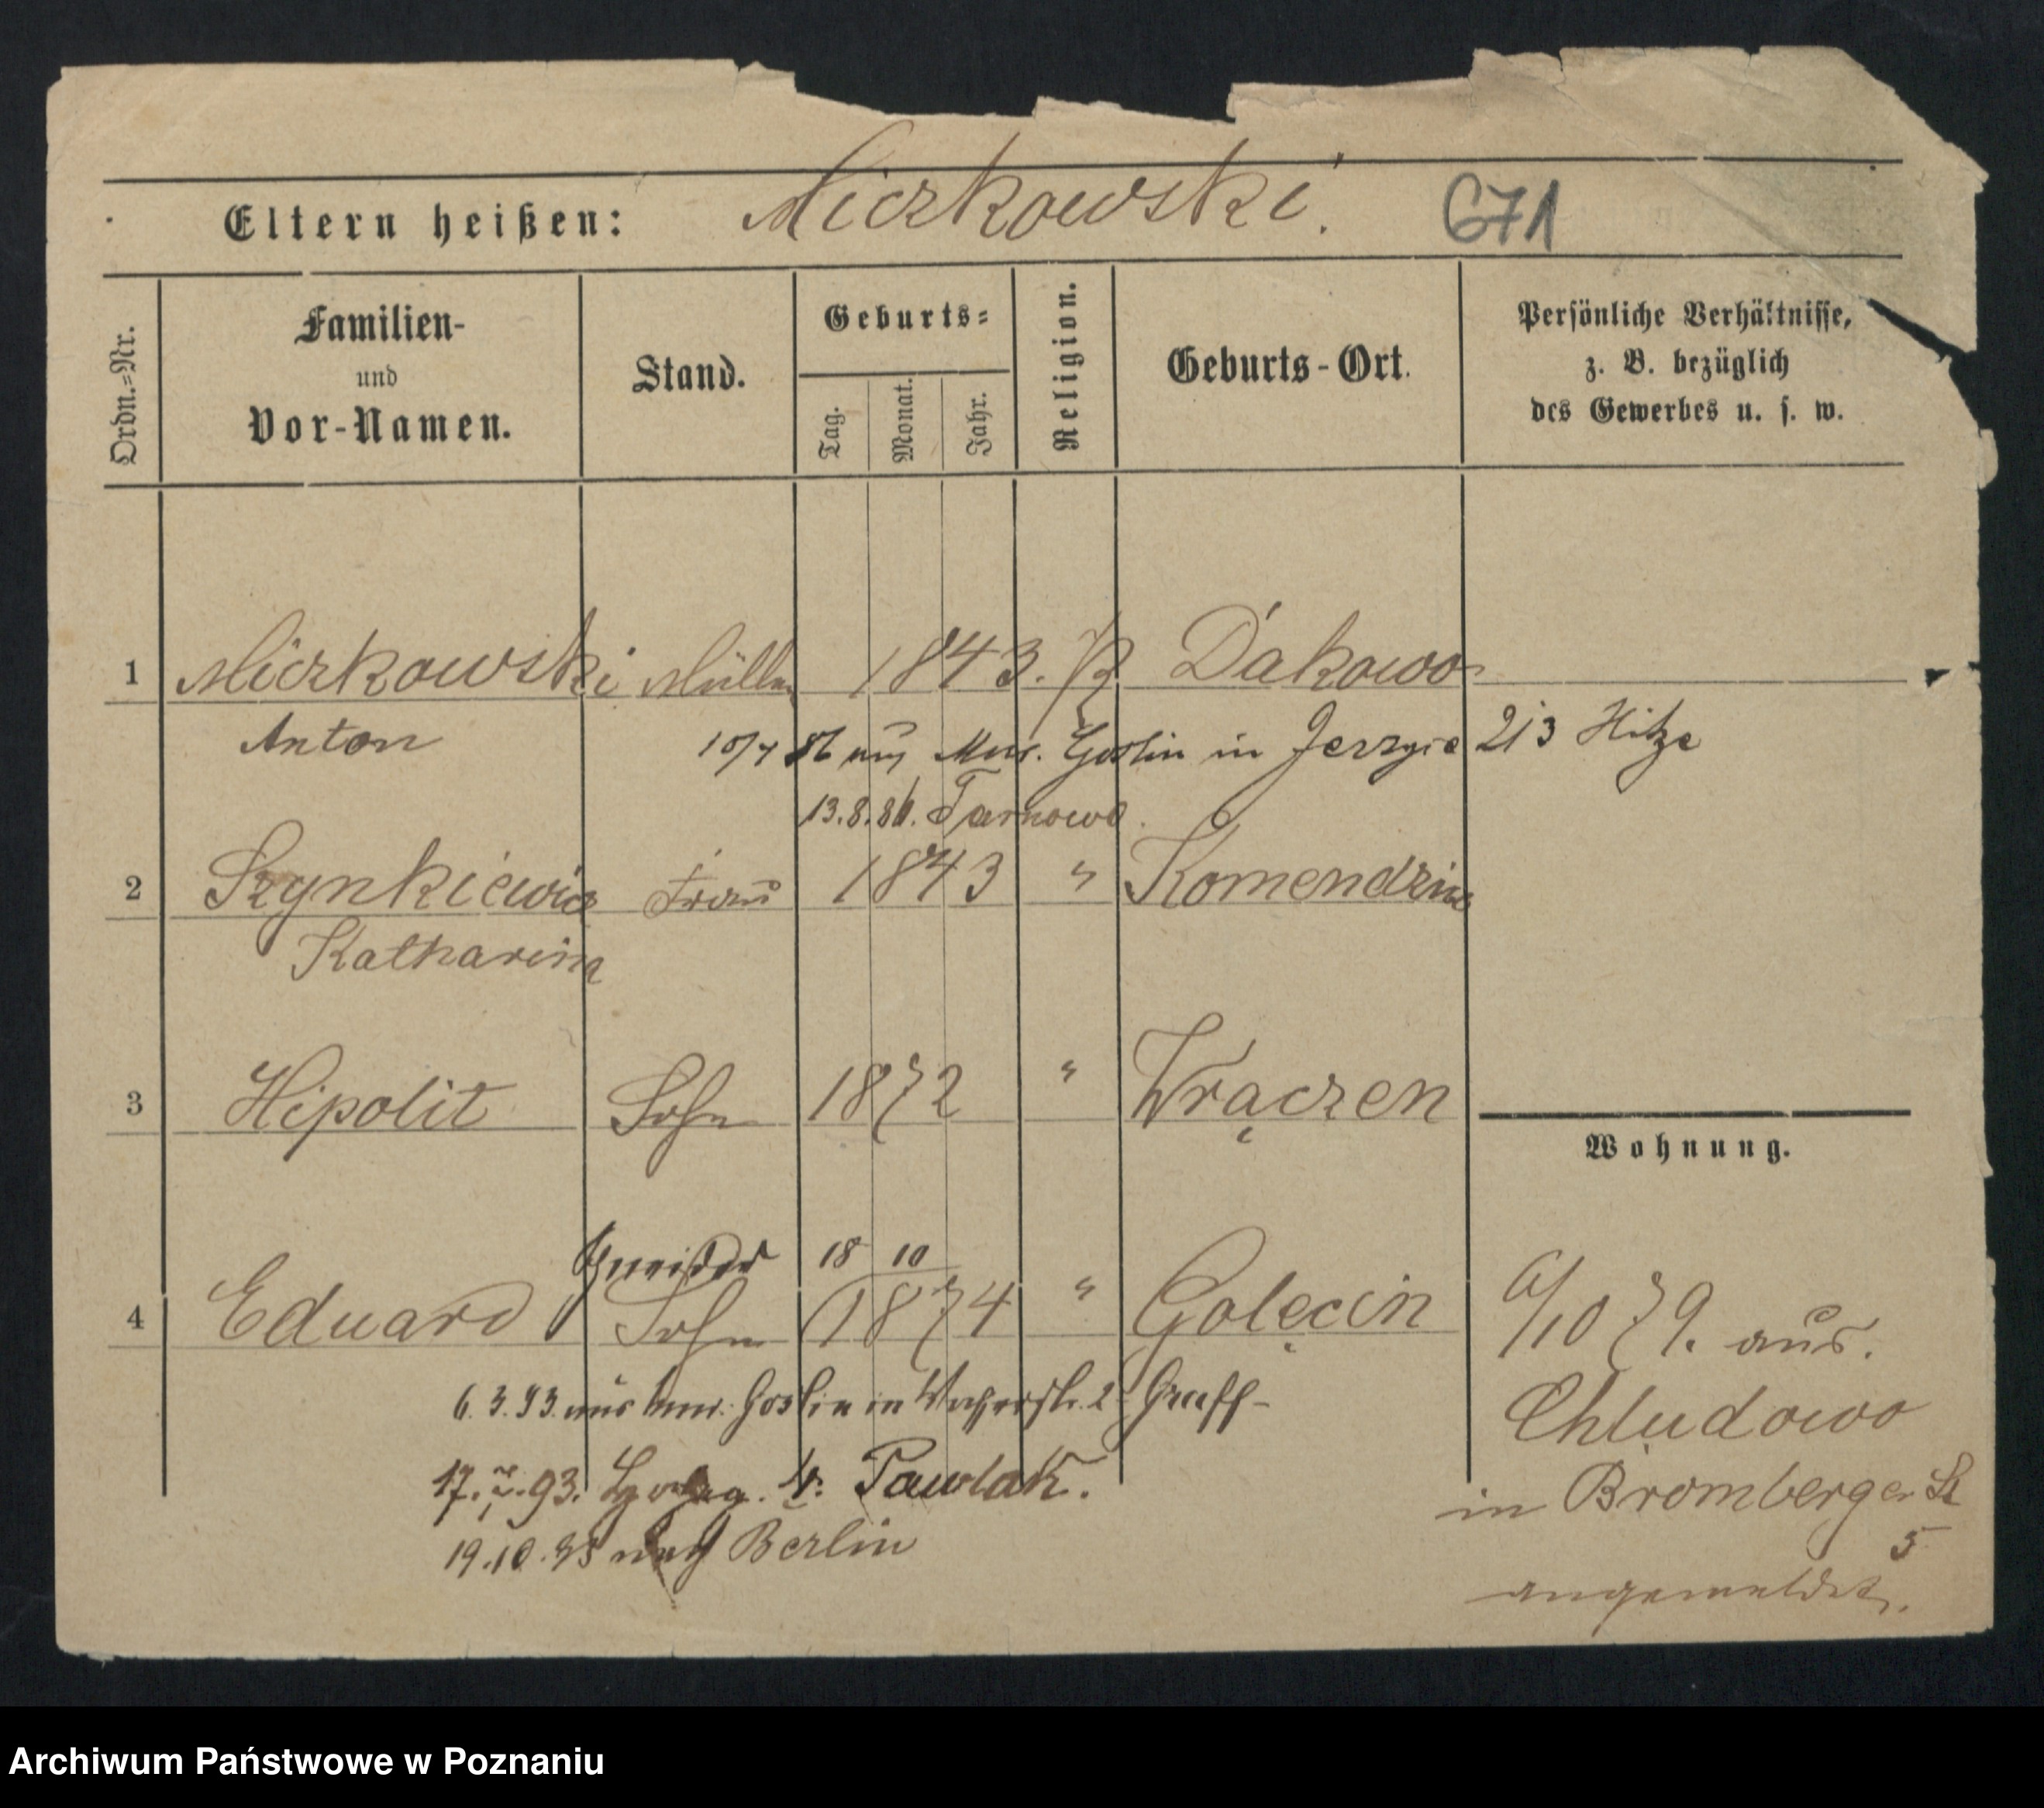 Eltern heißen: Miczkowski. 671
Ordn.=Nr.
Familien-
und
Vor-Namen.
Stand.
Geburts=
Tag.
Monat.
Jahr.
Religion.
Geburts-Ort.
Persönliche Verhältnisse,
z. B. bezüglich
des Gewerbes u. s. w.
1 Miczkowski Müller 1843. K Dakowo
Anton
10/7 86 aus Mur. Goslin in Jerzyce 213 Hitze
13.8.86. Tarnowo.
2 Szynkiewicz Frau 1843 " Komendzin
Katharina
3 Hipolit Sohn 1872 " Wrączen
Wohnung.
Schneider 18 10
4 Eduard Sohn 1874 " Golęcin
6/10 79. aus.
Chludowo
in Bromberger St
5
angemeldet.
6.3.93. aus Mur. Goslin in 2 Graff-
17. 93. b. Pawlak.
19.10. nach Berlin
Archiwum Państwowe w Poznaniu